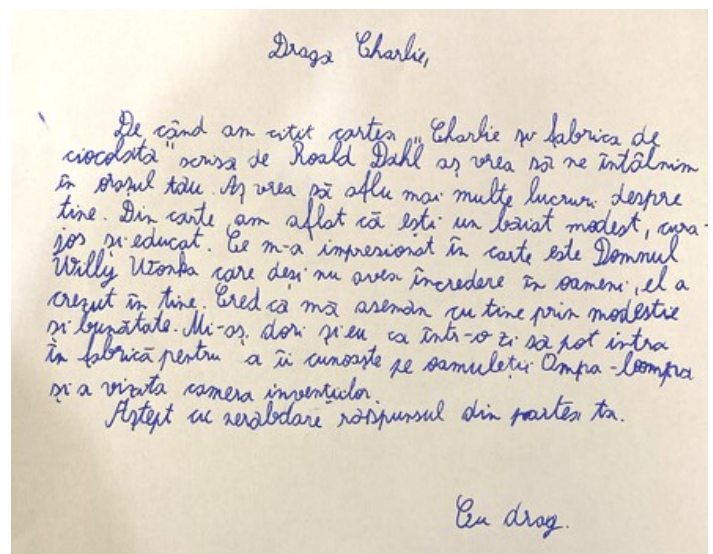 Dragă Charlie,
De când am citit cartea „Charlie și fabrica de
ciocolată" scrisă de Roald Dahl aș vrea să ne întâlnim
în orașul tău. Aș vrea să aflu mai multe lucruri despre
tine. Din carte am aflat că ești un băiat modest, cura-
jos și educat. Ce m-a impresionat în carte este Domnul
Willy Wonka care deși nu avea încredere în oameni, el a
crezut în tine. Cred că mă asemăn cu tine prin modestie
și bunătate. Mi-aș dori și eu ca într-o zi să pot intra
în fabrică pentru a îi cunoaște pe oamuleții Ompa-loompa
și a vizita camera invențiilor.
Aștept cu nerăbdare răspunsul din partea ta.
Cu drag.